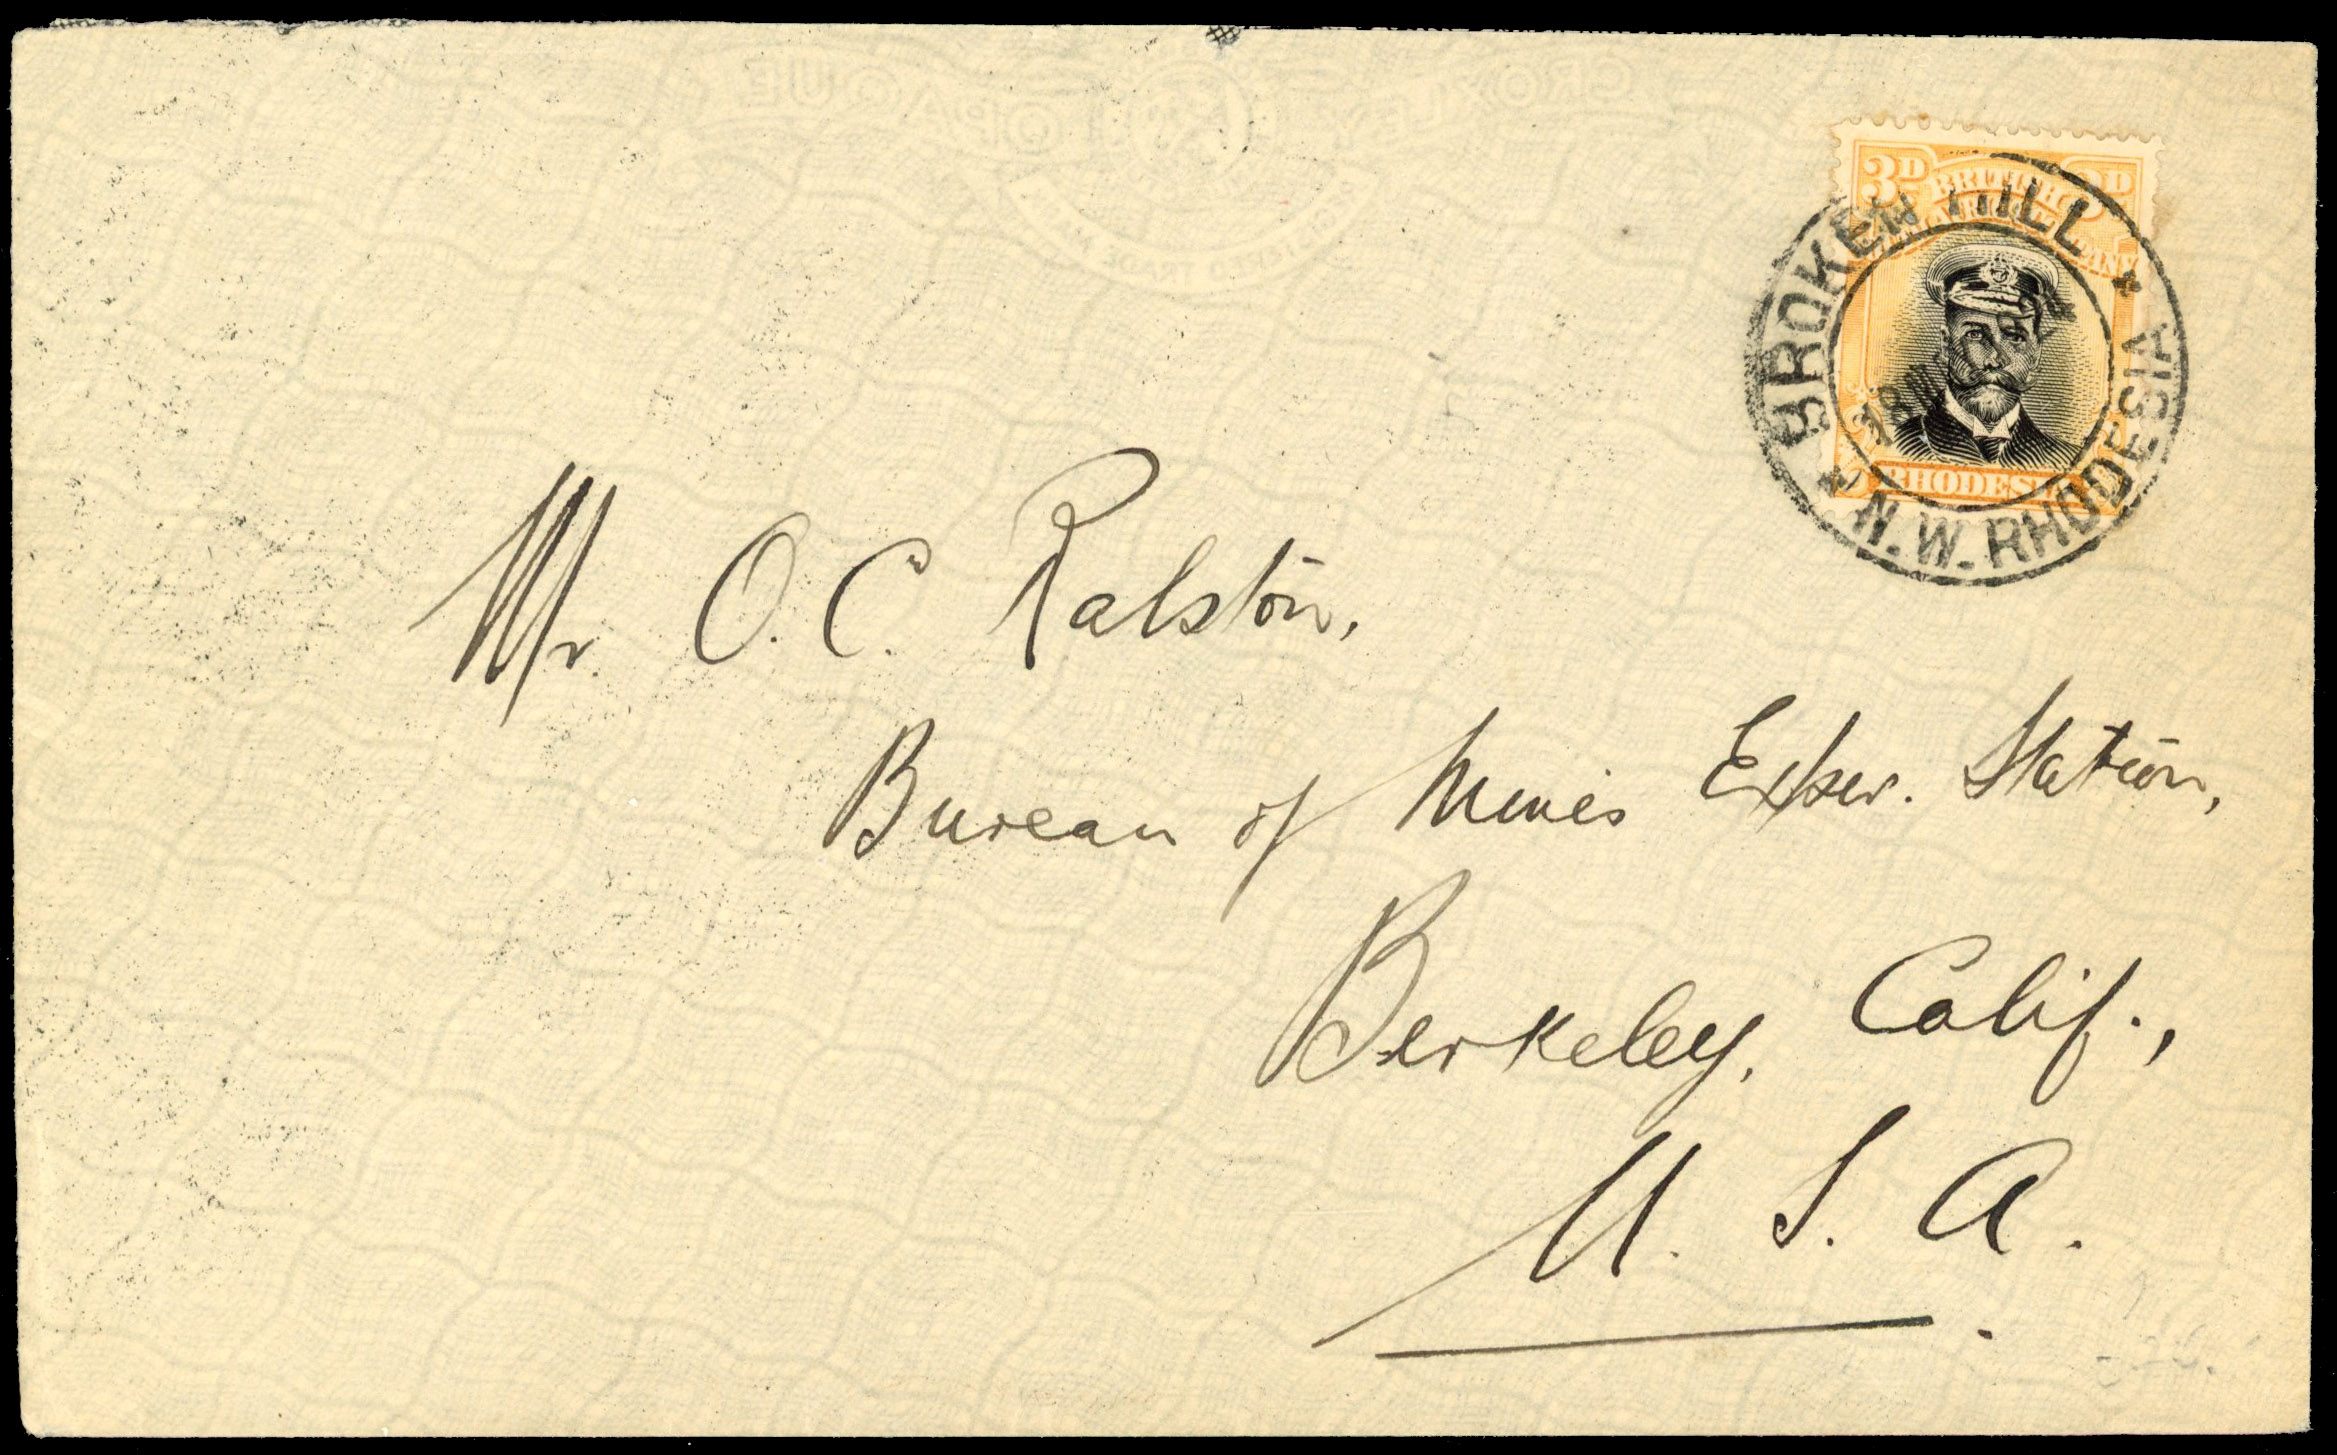 3D BRITISH 3D
RHODESIA
BROKEN HILL
N.W. RHODESIA
Mr O. C. Ralston,
Bureau of Mines Exper. Station,
Berkeley, Calif.,
U. S. A.